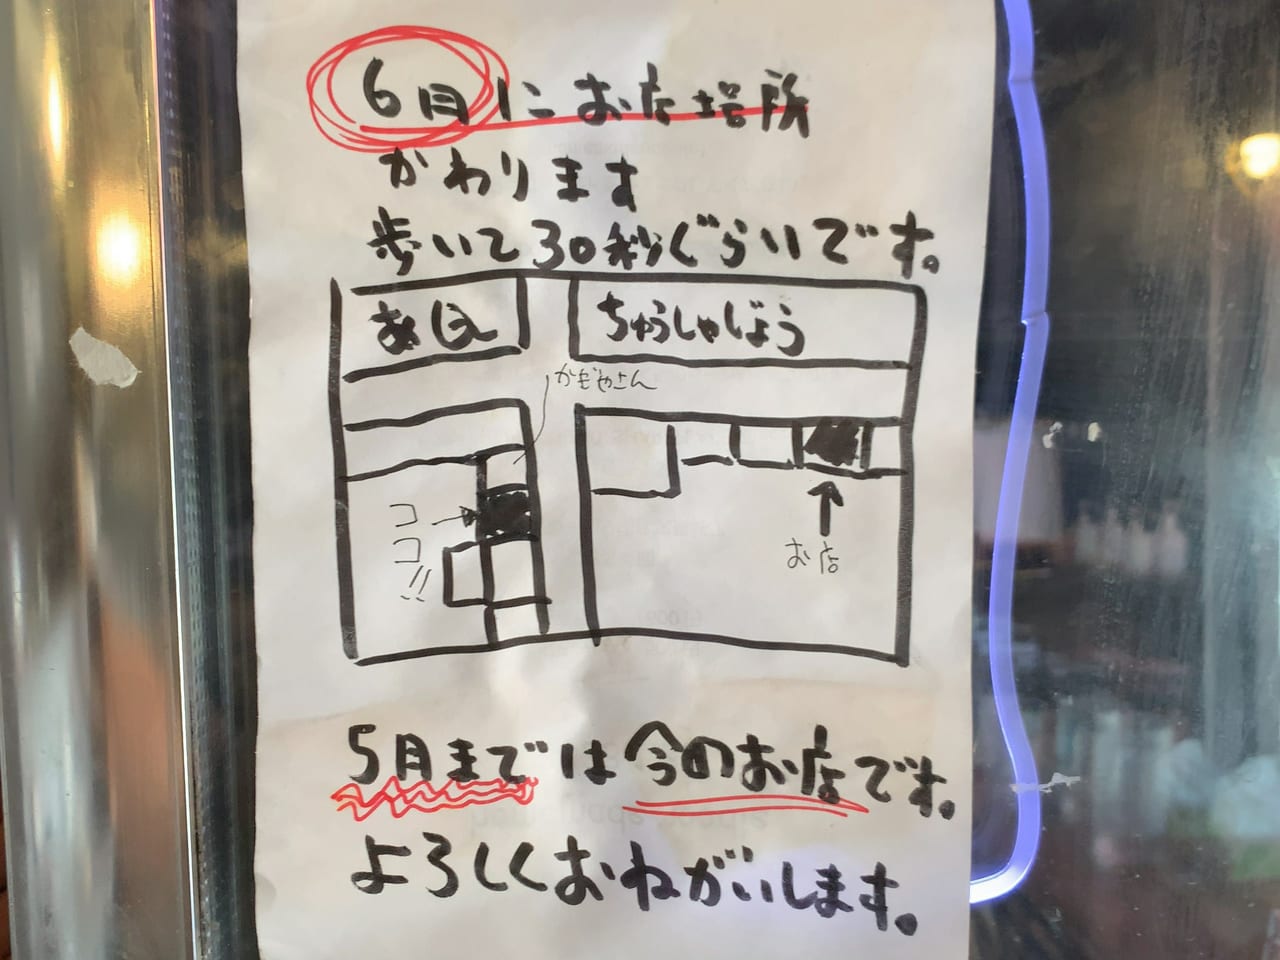 6月にお店場所
かわります
歩いて30秒ぐらいです。
ちゅうしゃじょう
かぎやさん
ココ!!
お店
5月までは今のお店です。
よろしくおねがいします。